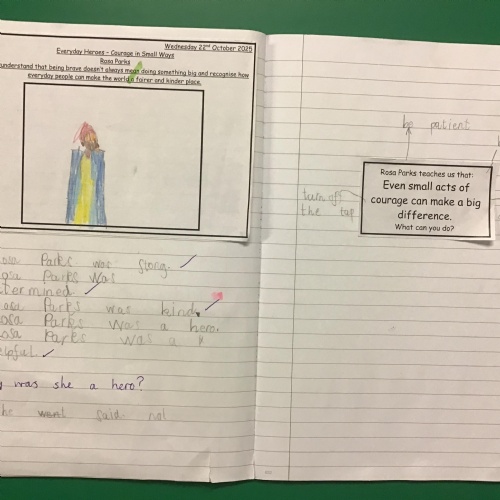 Wednesday 22nd October 2025
Everyday Heroes - Courage in Small Ways
Rosa Parks
understand that being brave doesn't always mean doing something big and recognise how
everyday people can make the world a fairer and kinder place.
Parks was stong.
osa Parks was
termined
osa Parks was kind.
osa Parks was a hero.
osa Parks was a h
elpful
was she a hero?
he went said not
be patient
turn off
the tap
Rosa Parks teaches us that:
Even small acts of
courage can make a big
difference.
What can you do?